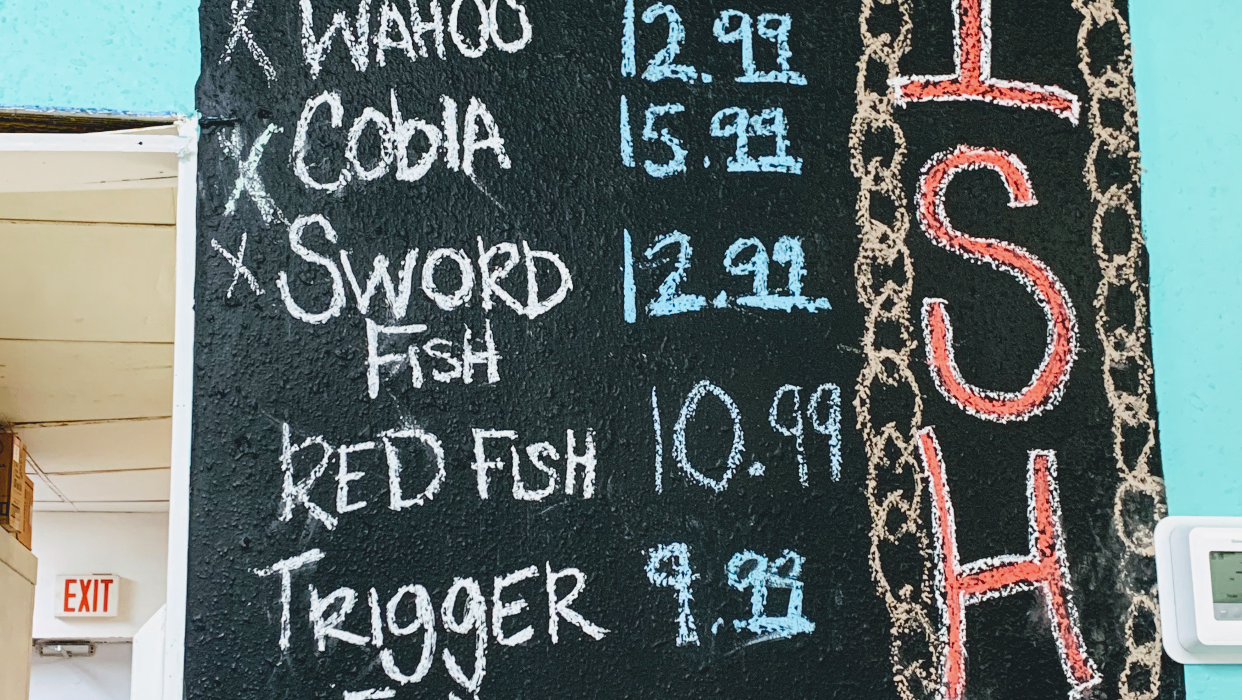 x WAHOO 12.99
x CobIA 15.99
x SWORD 12.99
FisH
RED FisH 10.99
TRiggER 9.99
ISH
EXIT